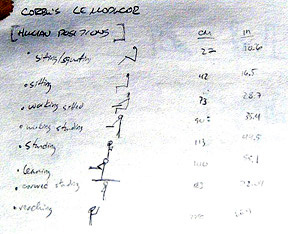 CORBU'S LE MODULOR
[HUMAN POSITIONS] cm in
• sitting/squatting 27 10.6
• sitting 42 16.5
• working seated 73 28.7
• working standing 35.4
• standing 113 44.5
• leaning 55.1
• standing
• reaching